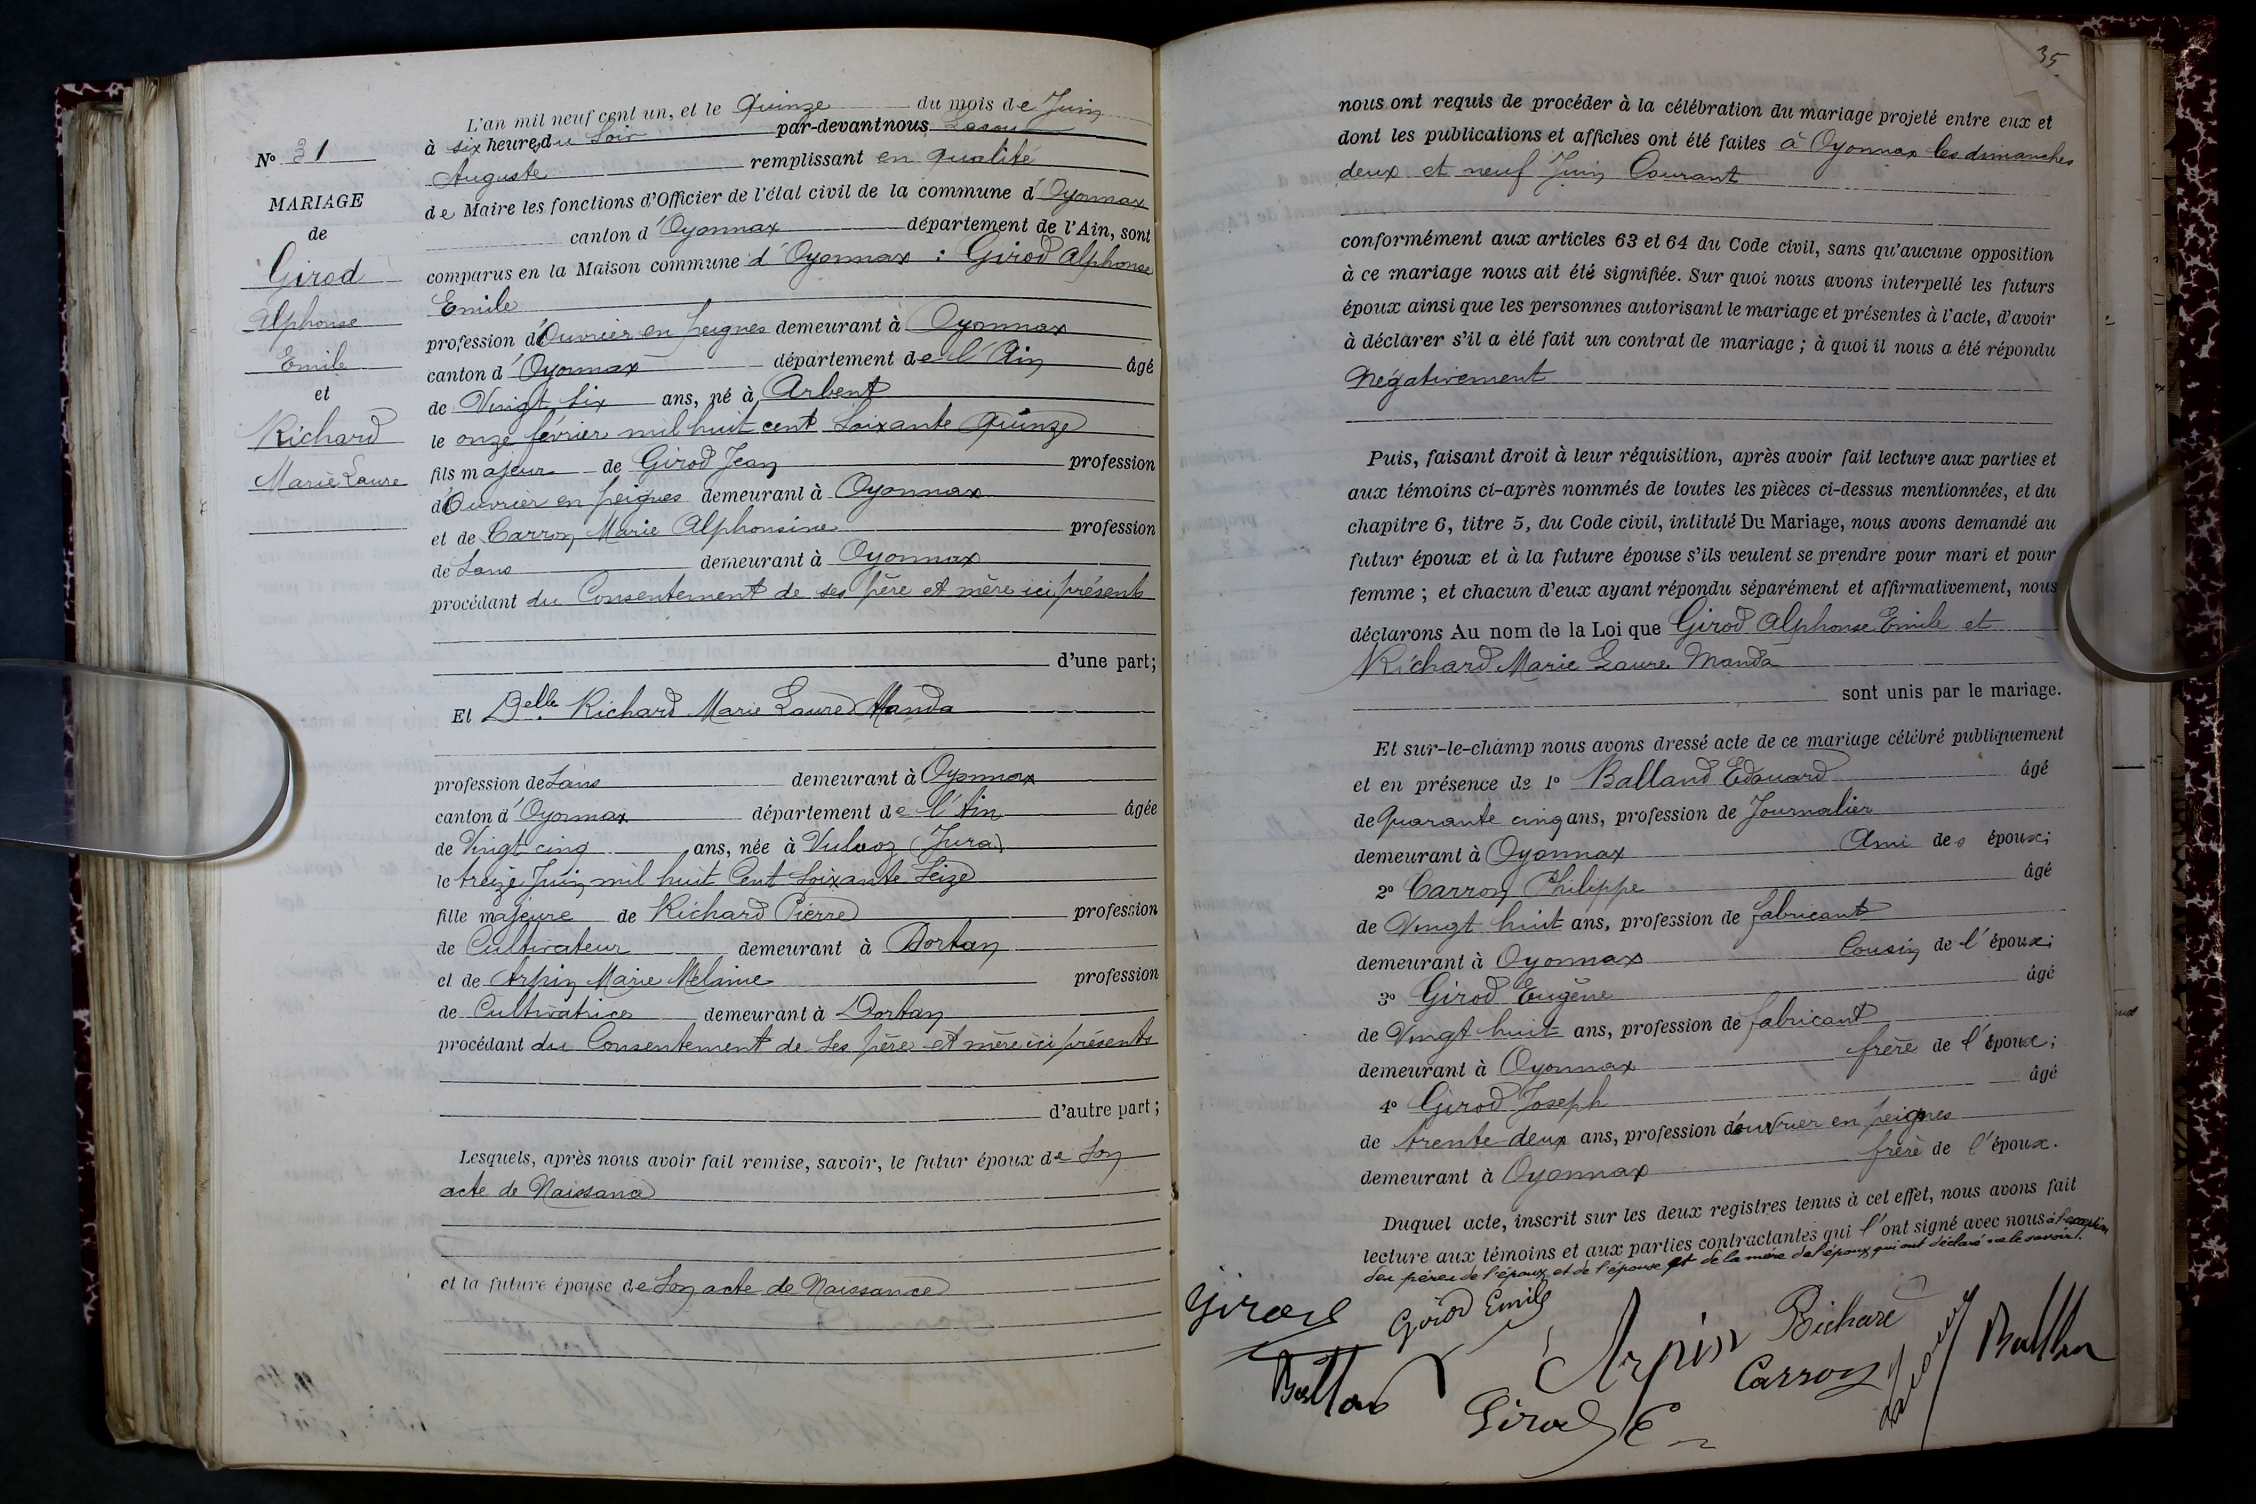 L'an mil neuf cent un, et le Quinze du mois de Juin
à six heures du Soir par-devant nous
Auguste remplissant en qualité
de Maire les fonctions d'Officier de l'état civil de la commune d'Oyonnax
canton d'Oyonnax département de l'Ain, sont
comparus en la Maison commune d'Oyonnax : Girod Alphonse
Emile
profession d'Ouvrier en peignes demeurant à Oyonnax
canton d'Oyonnax département de l'Ain âgé
de Vingt six ans, né à Arbent
le onze février mil huit cent soixante Quinze
fils majeur de Girod Jean profession
d'Ouvrier en peignes demeurant à Oyonnax
et de Carron Marie Alphonsine profession
de Sans demeurant à Oyonnax
procédant du Consentement de ses père et mère ici présents
d'une part;
Et Delle Richard Marie Laure Manda
profession de Sans demeurant à Oyonnax
canton d'Oyonnax département de l'Ain âgée
de Vingt cinq ans, née à Vulvoz (Jura)
le treize Juin mil huit Cent Soixante Seize
fille majeure de Richard Pierre profession
de Cultivateur demeurant à Dortan
et de Arpin Marie Mélanie profession
de Cultivatrice demeurant à Dortan
procédant du Consentement de ses père et mère ici présents
d'autre part;
Lesquels, après nous avoir fait remise, savoir, le futur époux de Son
acte de Naissance
et la future épouse de Son acte de Naissance
No 31
MARIAGE
de
Girod
Alphonse
Emile
et
Richard
Marie Laure
35
nous ont requis de procéder à la célébration du mariage projeté entre eux et
dont les publications et affiches ont été faites à Oyonnax les dimanches
deux et neuf Juin Courant
conformément aux articles 63 et 64 du Code civil, sans qu'aucune opposition
à ce mariage nous ait été signifiée. Sur quoi nous avons interpellé les futurs
époux ainsi que les personnes autorisant le mariage et présentes à l'acte, d'avoir
à déclarer s'il a été fait un contrat de mariage ; à quoi il nous a été répondu
Négativement
Puis, faisant droit à leur réquisition, après avoir fait lecture aux parties et
aux témoins ci-après nommés de toutes les pièces ci-dessus mentionnées, et du
chapitre 6, titre 5, du Code civil, intitulé Du Mariage, nous avons demandé au
futur époux et à la future épouse s'ils veulent se prendre pour mari et pour
femme ; et chacun d'eux ayant répondu séparément et affirmativement, nous
déclarons Au nom de la Loi que Girod Alphonse Emile et
Richard Marie Laure Manda
sont unis par le mariage.
Et sur-le-champ nous avons dressé acte de ce mariage célébré publiquement
et en présence de 1o Balland Edouard âgé
de Quarante cinq ans, profession de Journalier
demeurant à Oyonnax Ami des époux;
2o Carron Philippe âgé
de Vingt huit ans, profession de fabricant
demeurant à Oyonnax Cousin de l'époux;
3o Girod Eugène âgé
de Vingt huit ans, profession de fabricant
demeurant à Oyonnax frère de l'époux;
4o Girod Joseph âgé
de trente deux ans, profession d'ouvrier en peignes
demeurant à Oyonnax frère de l'époux.
Duquel acte, inscrit sur les deux registres tenus à cet effet, nous avons fait
lecture aux témoins et aux parties contractantes qui l'ont signé avec nous à l'exception
des pères de l'époux et de l'épouse et de la mère de l'époux qui ont déclaré ne le savoir.
Girod
Girod Emile
Arpin
Richard
Carron
Girod E